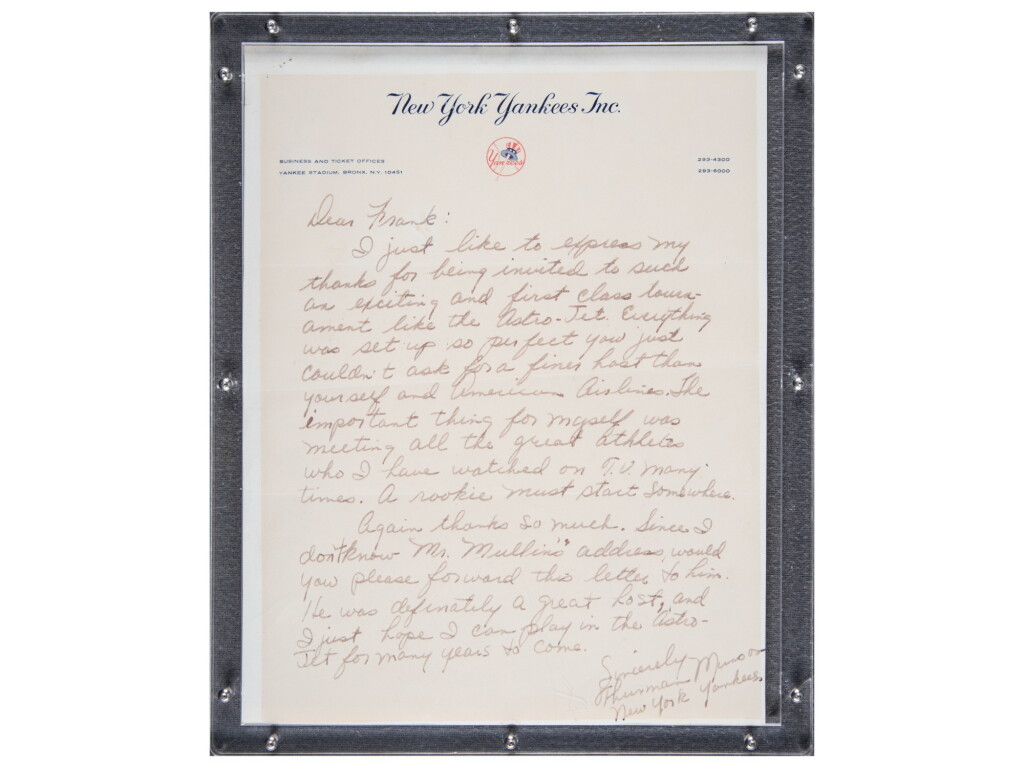 New York Yankees Inc.
Yankees
BUSINESS AND TICKET OFFICES
YANKEE STADIUM, BRONX, N.Y. 10451
293-4300
293-6000
Dear Frank:
I just like to express my
thanks for being invited to such
an exciting and first class tourn-
ament like the Astro-Jet. Everything
was set up so perfect you just
couldn't ask for a finer host than
yourself and American Airlines. The
important thing for myself was
meeting all the great athletes
who I have watched on T.V. many
times. A rookie must start somewhere.
Again thanks so much. Since I
don't know Mr. Mullins' address would
you please forward this letter to him.
He was definately a great host, and
I just hope I can play in the Astro-
Jet for many years to come.
Sincerely
Thurman Munson
New York Yankees